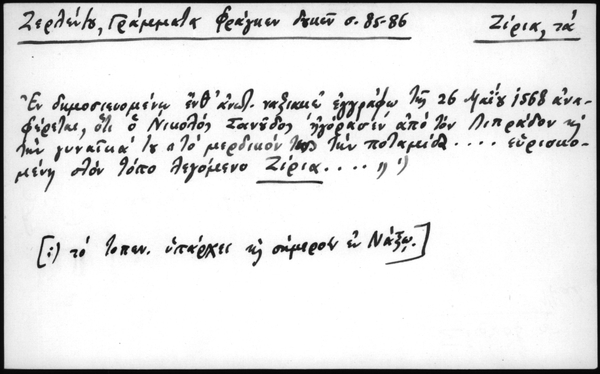 Ζερλέντου, Γράμματα Φράγκων δουκῶν σ. 85-86
Ζίρια, τά
Ἐν δημοσιευομένῳ ἔνθ' ἀνωτ. ναξιακῷ ἐγγράφῳ τῆς 26 Μαΐου 1568 ἀνα-
φέρεται, ὅτι ὁ Νικολός Σανοῦδος ἠγόρασεν ἀπό τόν Λιπράδον κ
τήν γυναῖκά του "τό μερδικόν τους τήν ποταμιά .... εὑρισκο-
μένη στόν τόπο λεγόμενο Ζίρια .... " 1)
[:) τό τοπων. ὑπάρχει κ σήμερον ἐν Νάξῳ.]